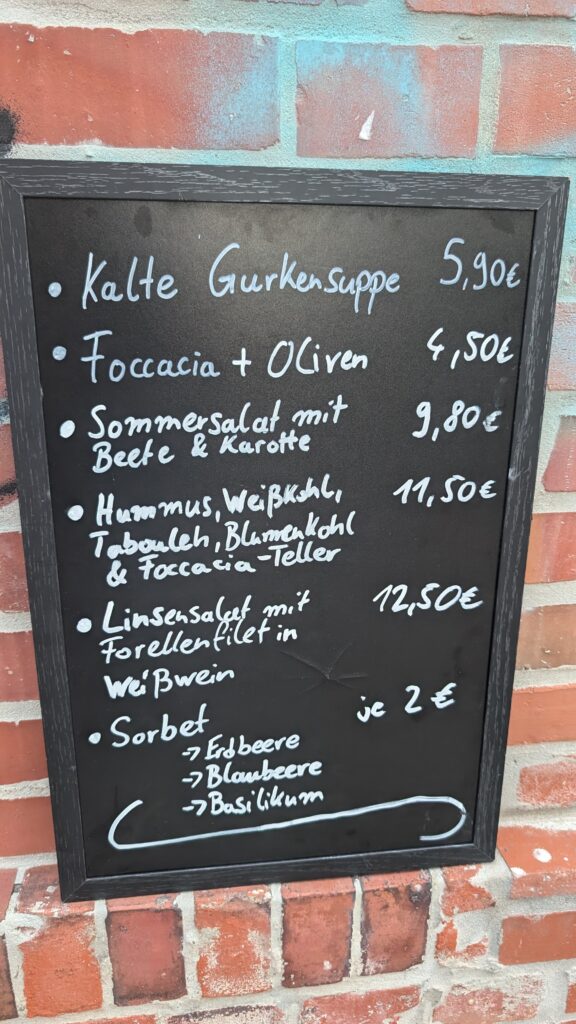 • Kalte Gurkensuppe 5,90€
• Foccacia + Oliven 4,50€
• Sommersalat mit 9,80€
Beete & Karotte
• Hummus, Weißkohl, 11,50€
Tabouleh, Blumenkohl
& Foccacia-Teller
• Linsensalat mit 12,50€
Forellenfilet in
Weißwein
• Sorbet je 2€
→ Erdbeere
→ Blaubeere
→ Basilikum